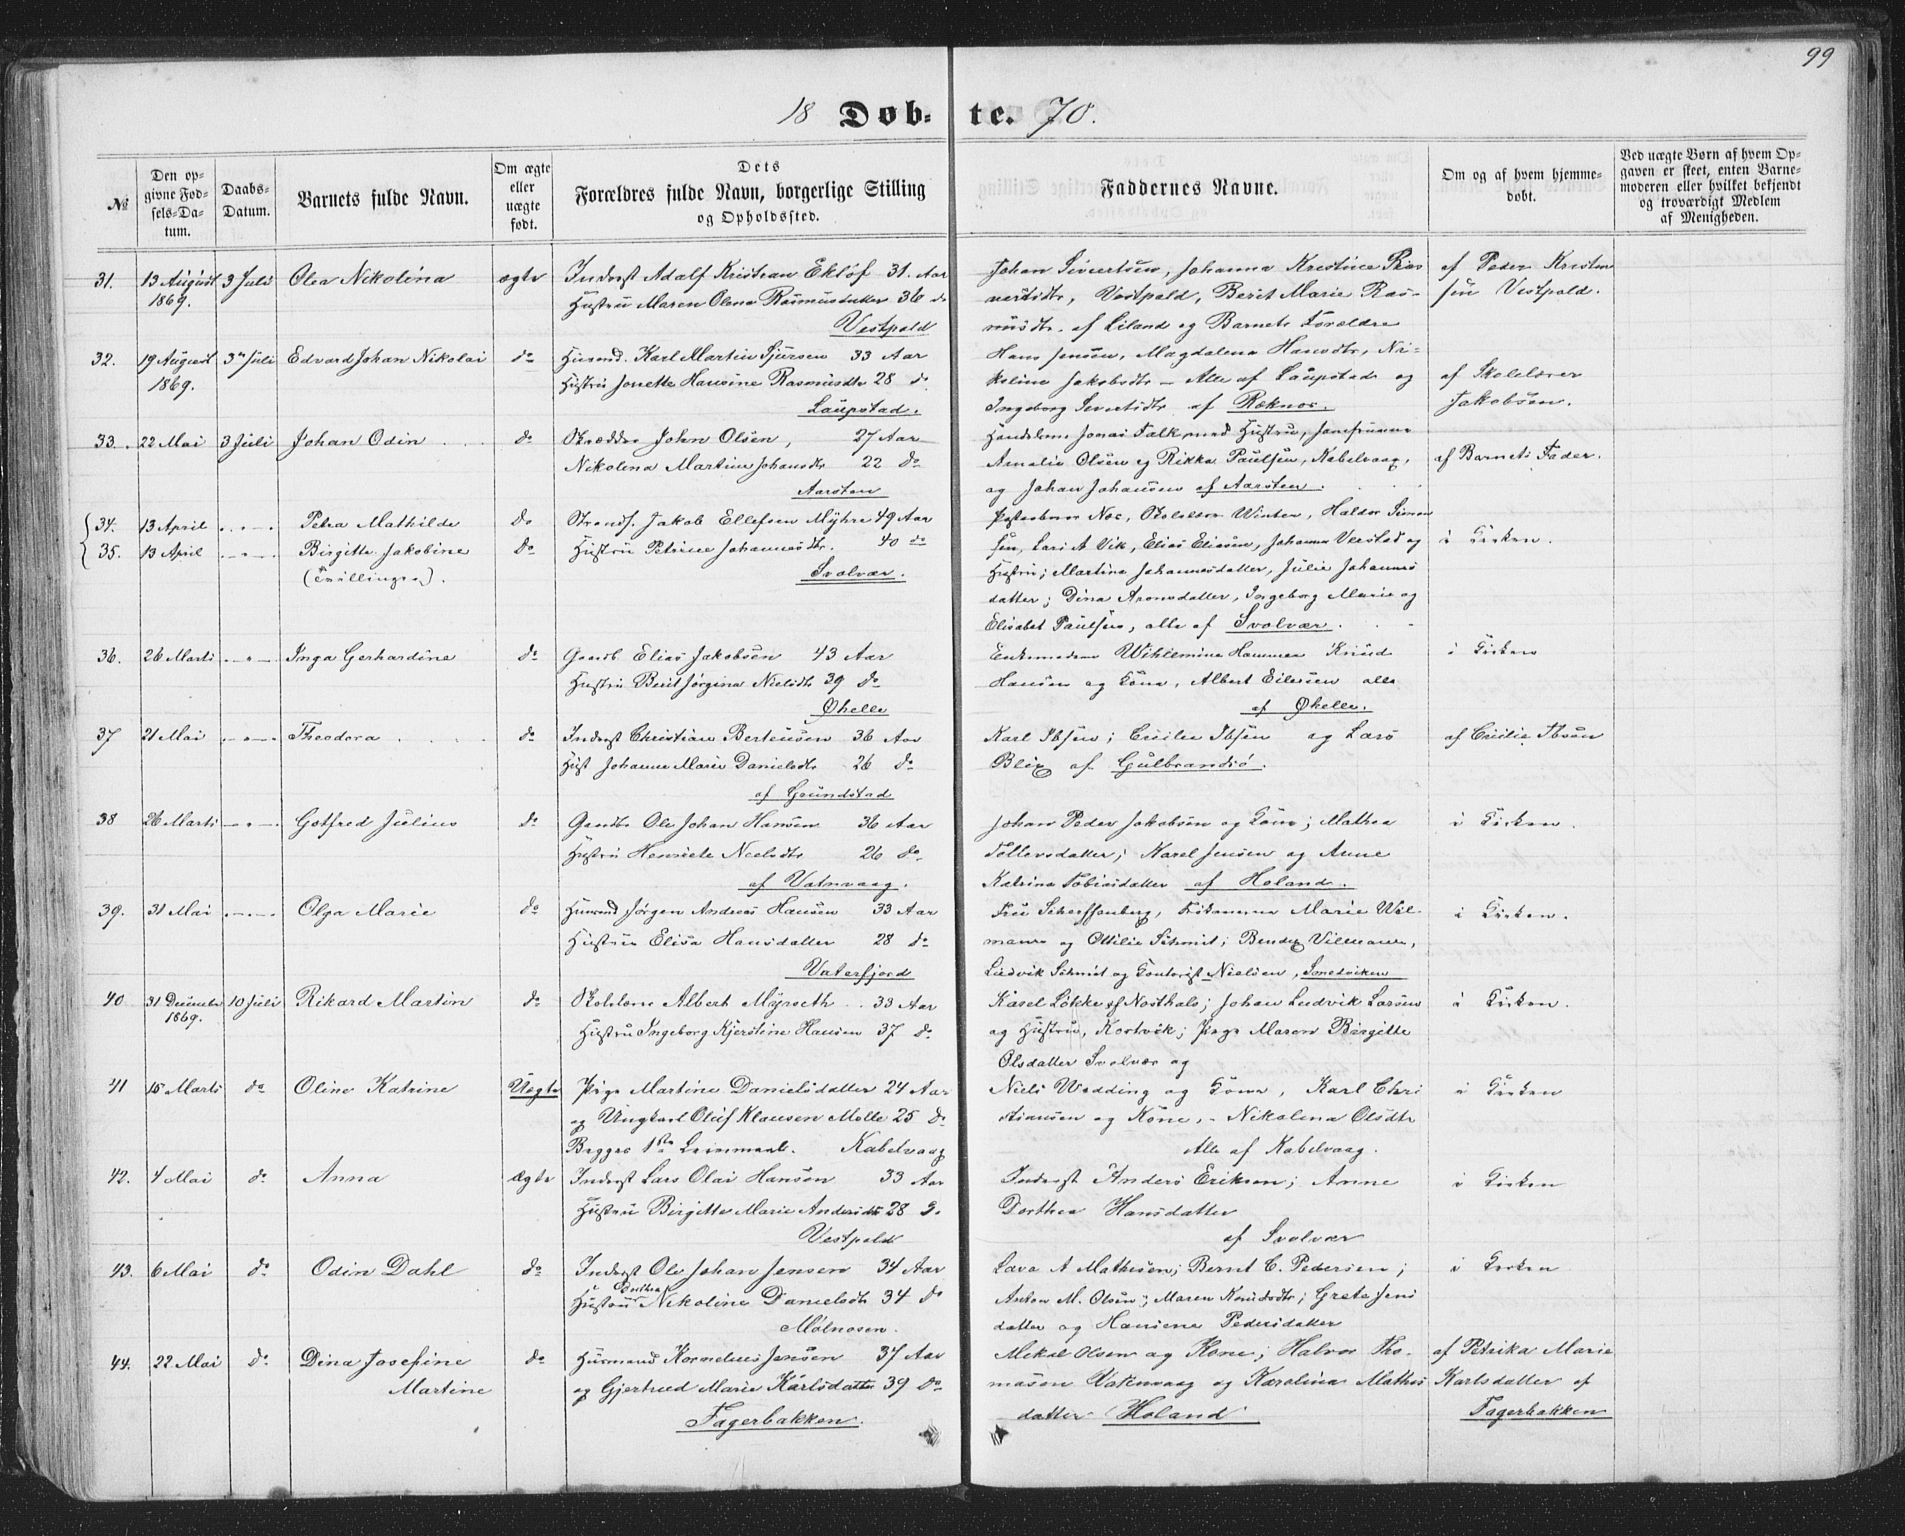 99
18 Døb- te. 70.
№
Den op-
givne Fød-
sels-Da-
tum.
Daabs-
Datum.
Barnets fulde Navn.
Om ægte
eller
uægte
født.
Dets
Forældres fulde Navn, borgerlige Stilling
og Opholdssted.
Faddernes Navne.
Om og af hvem hjemme-
døbt.
Ved uægte Børn af hvem Op-
gaven er skeet, enten Barne-
moderen eller hvilket bekjendt
og troværdigt Medlem
af Menigheden.
31. 13 August 3 Juli Olea Nikolina ægte Inderst Adolf Kristian Eklöf 31. Aar
1869. Hustru Maren Olena Rasmusdatter 36 do
Vestpold
Johan Sivertsen, Johanna Kristine
Vestpold, Berit Marie Ras-
musdtr. af Liland og Barnets Forældre
af Peder Kristen
sen Vestpold.
32. 19 August 3 Juli Edvard Johan Nikolai do Husmd. Karl Martin Sjursen 33 Aar
1869. Hustru Jonette Hansine Rasmusdtr 28 do
Laupstad.
Hans Jensen, Magdalena Hansdtr, Ni-
koline Jakobsdtr - Alle af Laupstad og
Ingeborg Sivertsdtr af Røknes.
af Skolelærer
Jakobsen.
33. 22 Mai 3 Juli Johan Odin do Skrædder John Olsen, 27 Aar
Nikolina Martine Johansdtr 22 do
Aarsten
Jonas Falk med Hustru, Jomfruerne
Amalie Olsen og Rikka Paulsen, Kabelvaag,
og Johan Johansen af Aarsten.
af Barnets Fader.
34. 13 April Petra Mathilde do Strands. Jakob Ellefsen Myhre 49 Aar
35. 13 April Birgitte Jakobine do Hustru Petrine Johannesdtr. 40 do
(Tvillinger). Svolvær.
Noe, Winter, Haldor Simon
sen, Lars A Vik, Elias Eliasen, Johannes Verstad og
Hustru; Martina Johannesdatter, Julie Johannes
datter; Dina Aronsdatter, Ingeborg Marie og
Elisabet Paulsen, alle af Svolvær.
i Kirken.
36. 26 Marts Inga Gerhardine do Gaardb Elias Jakobsen 43 Aar
Hustru Berit Jørgina Nielsdtr 39 do
Økelle
Wihlemine Hammer Knud
Hansen og Kone, Albert Eilersen alle
af Økelle.
i Kirken
37 21 Mai Theodora do Inderst Christian Berteusen 36 Aar
Hust Johanna Marie Danielsdtr 26 do
af Grundstad
Karl Ibsen; Cecilie Ibsen og Lars
Blix af Gulbrandsø.
af Cecilie Ibsen
38 26 Marts Gotfred Julius do Gaardbr Ole Johan Hansen 36 Aar
Hustru Henriete Nielsdtr 26 do
af Vatnvaag.
Johan Peder Jakobsen og Kone; Mathea
Tollevsdatter; Karel Jensen og Anne
Katrina Tobiasdatter af Holand.
i Kirken.
39. 31 Mai Olga Marie do Husmd Jørgen Andreas Hansen 33 Aar
Hustru Elisa Hansdatter 28 do
Vaterfjord
Fru Scharffenberg, Frøknerne Marie Wil-
mann og Ottilie Schmit; Bendix Vilmann,
Ludvik Schmit og Contorist Nielsen, Smedviken
i Kirken.
40 31 December 10 Juli Rikard Martin do Skolelærer Albert Myrseth 33 Aar
1869. Hustru Ingeborg Kjerstine Hansen 37 do
Karel Løkke af Nosthals; Johan Ludvik Larsen
og Hustru, Kortvik; Pige Maren Birgitte
Olsdatter Svolvær og
i Kirken.
41 15 Marts do Oline Katrine Uægte Pige Martine Danielsdatter 24 Aar
og Ungkarl Oluf Klausen Molle 25 do
Begges 1ste Leiermaal. Kabelvaag
Niels Wedding og Kone, Karl Chri
stiansen og Kone, - Nikolena Olsdtr
Alle af Kabelvaag.
i Kirken
42. 4 Mai do Anna ægte Inderst Lars Olai Hansen 33 Aar
Hustru Birgitte Marie Andersdtr 28 D.
Vestpold
Inderst Anders Eriksen; Anne
Dorthea Hansdatter
af Svolvær
i Kirken
43. 6 Mai do Odin Dahl do Inderst Ole Johan Jensen 34 Aar
Dorthea
Hustru Nikoline Danielsdtr 34 do
Mølnosen.
Lava A Mathisen; Bernt C. Pedersen;
Anton M. Olsen; Maren Knudsdtr; Grete Jens
datter og Hansine Pedersdatter
i Kirken
44. 22 Mai do Dina Josefine do Husmand Kornelius Jensen 37 Aar
Martine og Gjertrud Marie Karlsdatter 39 do
Fagerbakken.
Mikal Olsen og Kone; Halvor Tho-
masen Vatnvaag og Karolina Mathis
datter Holand
af Petrika Marie
Karlsdatter af
Fagerbakken